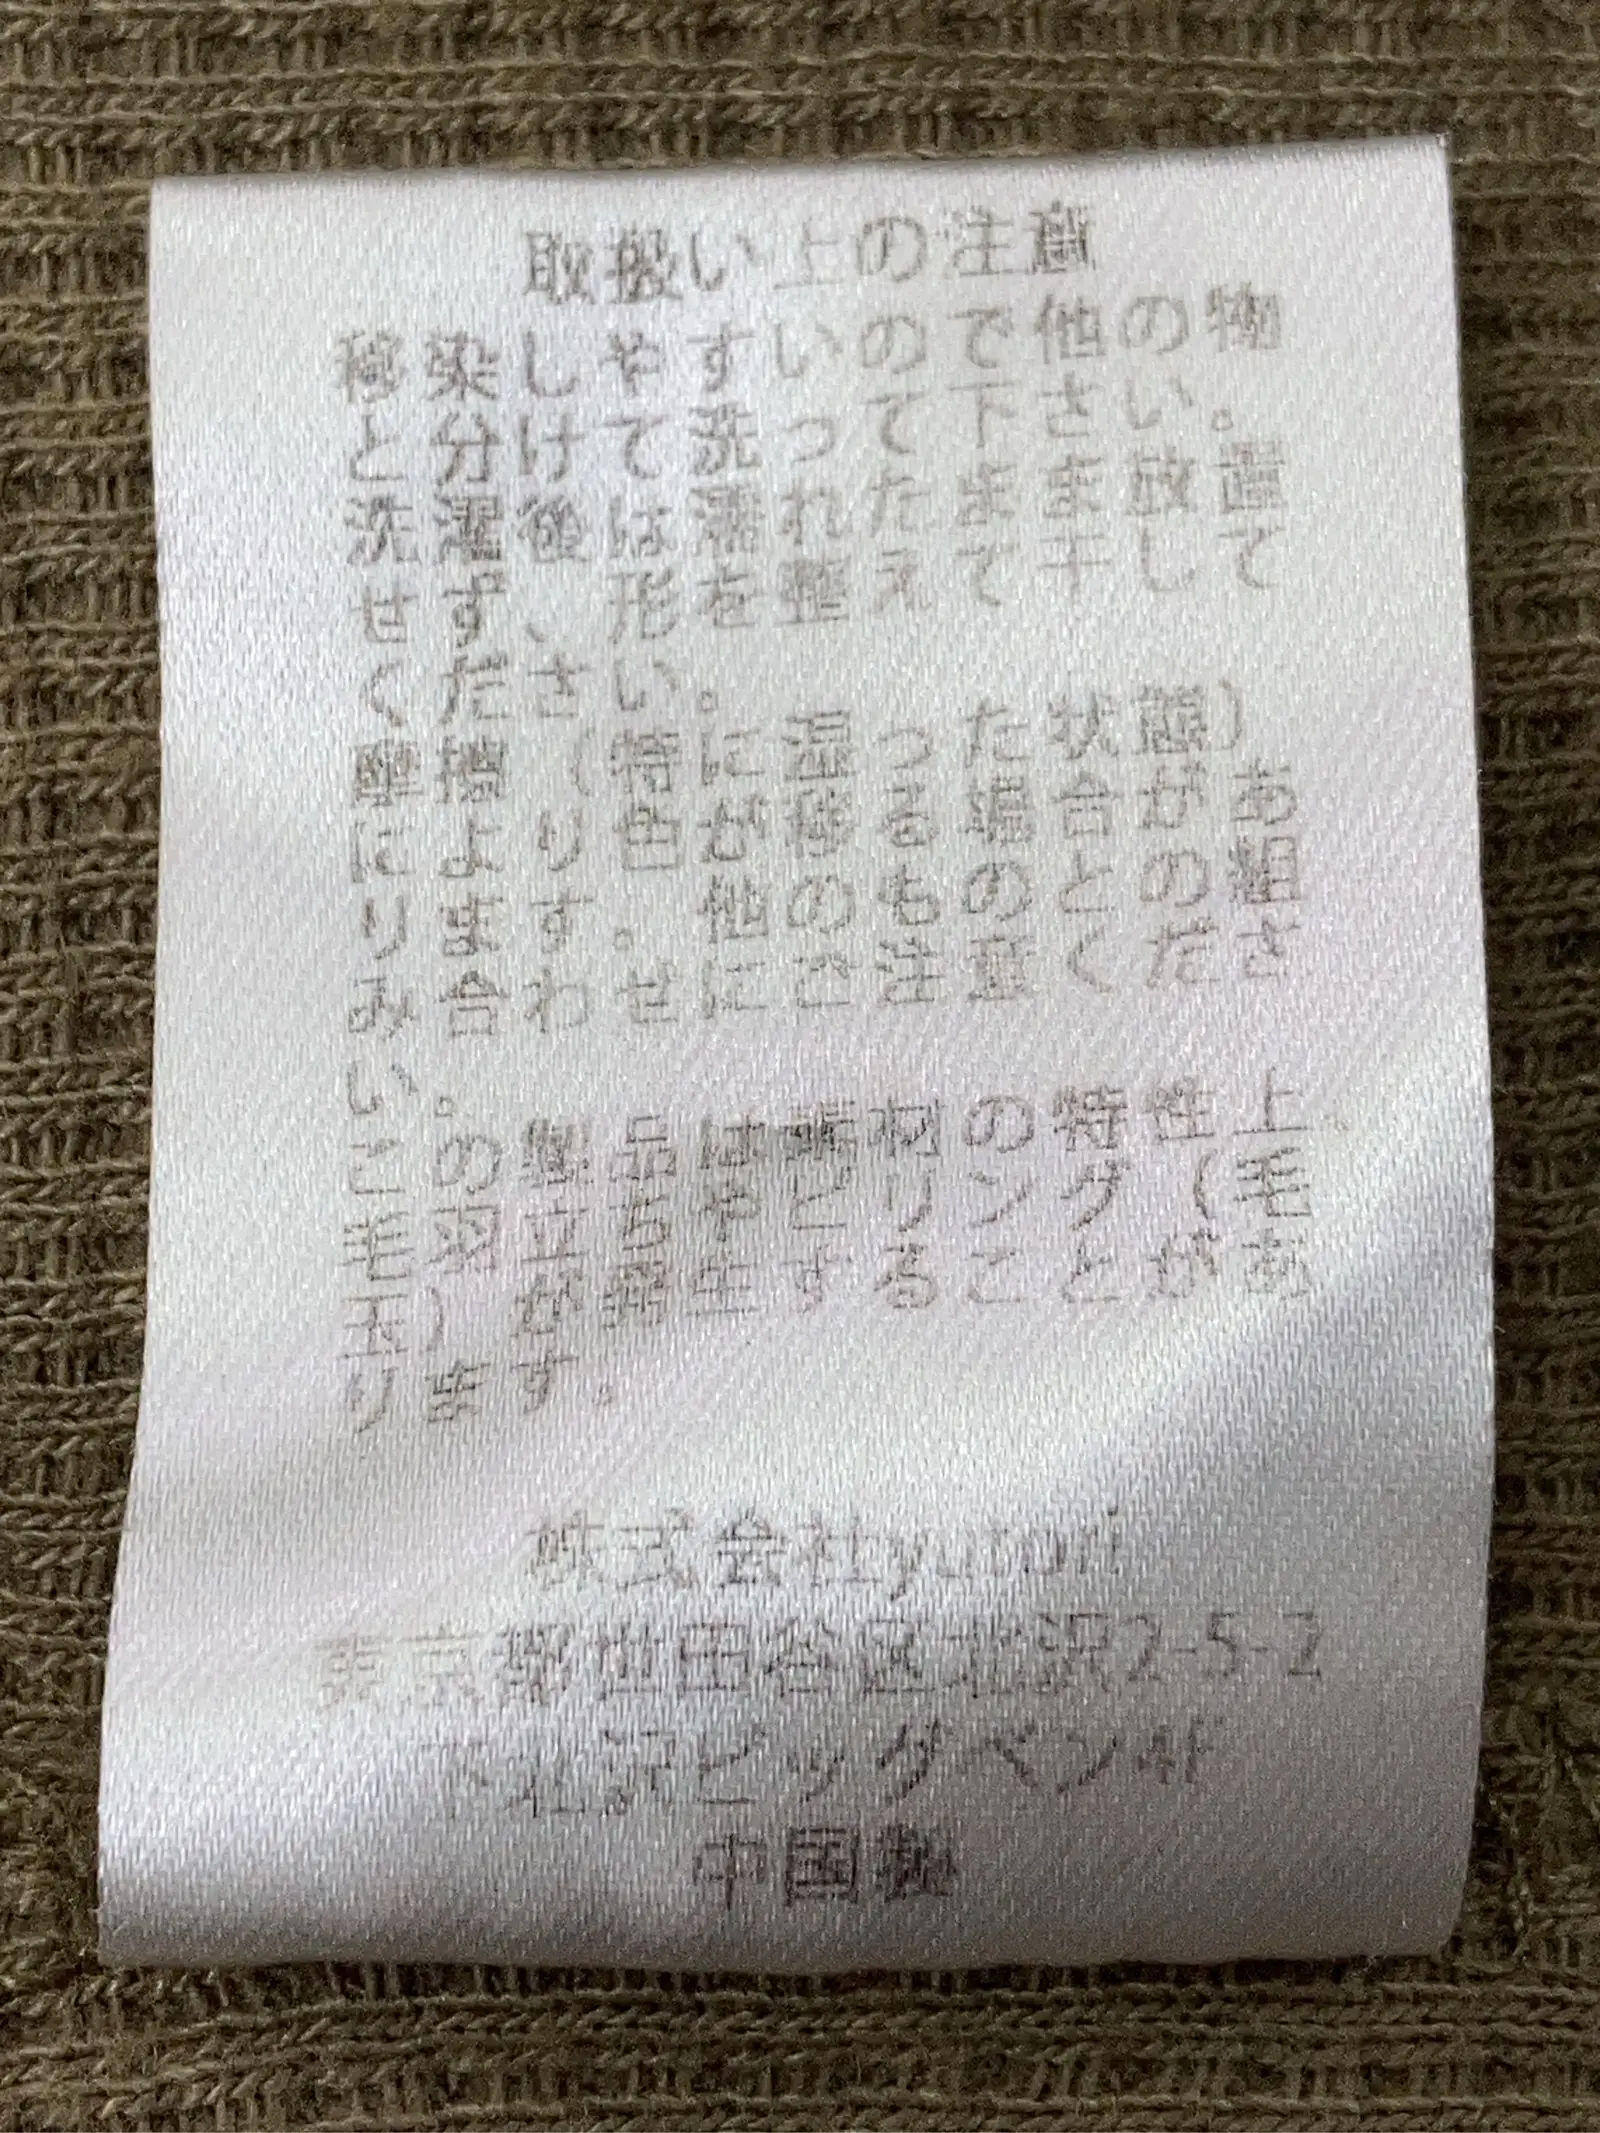 取扱い上の注意
移染しやすいので他の物
と分けて洗って下さい。
洗濯後は濡れたまま放置
せず、形を整えて干して
ください。
摩擦（特に湿った状態）
により色が移る場合があ
ります。他のものとの組
み合わせにご注意くださ
い。
この製品は素材の特性上、
毛羽立ちやピリング（毛
玉）が発生することがあ
ります。
株式会社yutori
東京都世田谷区北沢2-5-2
下北沢ビッグベン4F
中国製